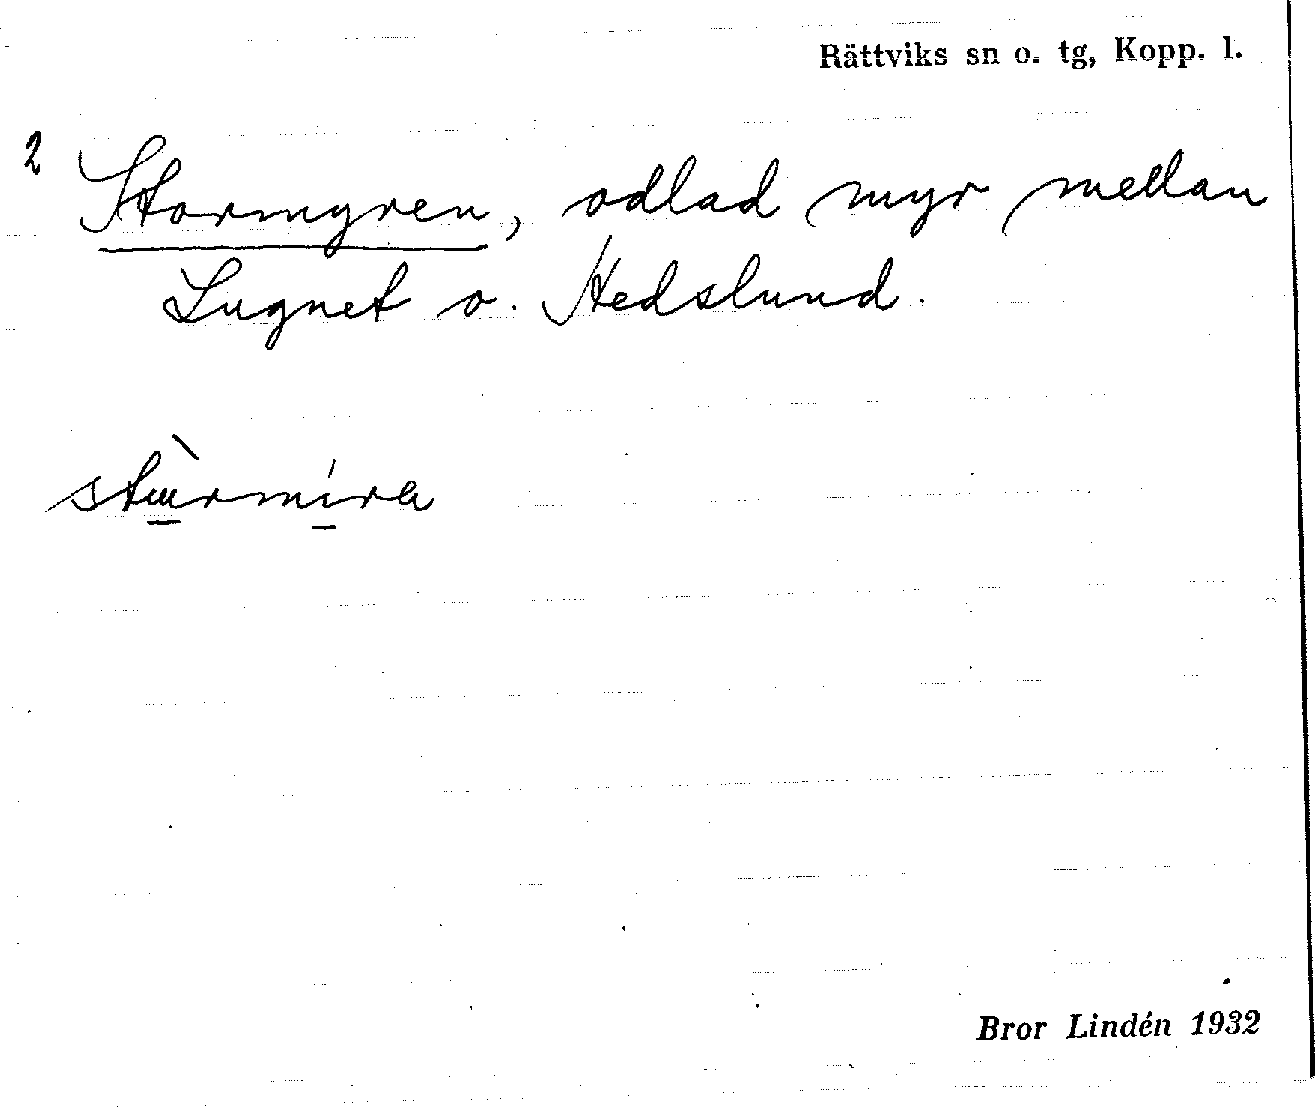 Rättviks sn o. tg, Kopp. l.
2 Stormyren, odlad myr mellan
Lugnet o. Hedslund.
stùrmíra
Bror Lindén 1932